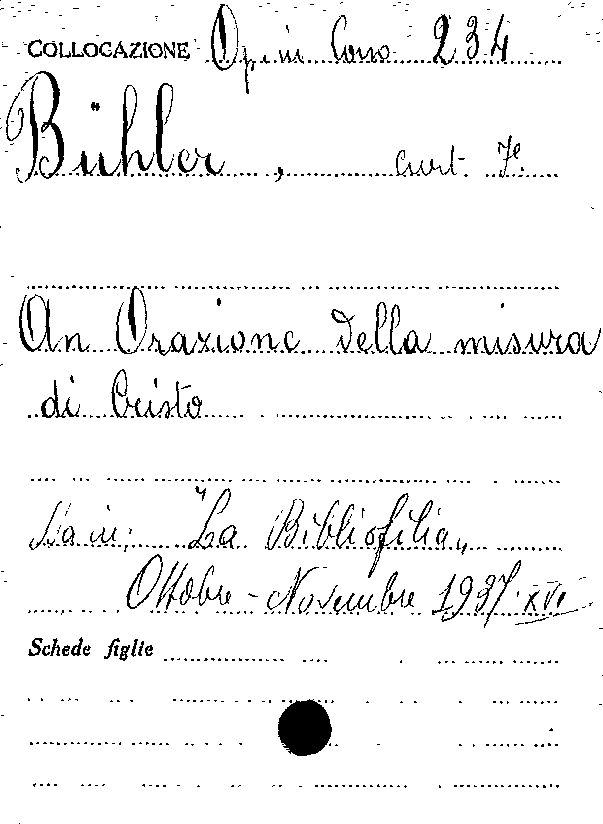 COLLOCAZIONE Opin Cons 234
Bühler, Curt. F.
An Orazione della misura
di Cristo
Sta in: "La Bibliofilia„
Ottobre-Novembre 1937. XVI
Schede figlie